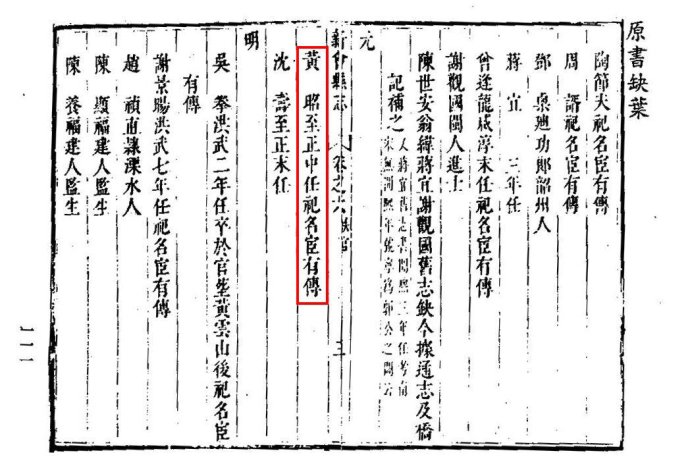 原書缺葉
陶節夫祀名宦有傳
周 諝祀名宦有傳
鄧 棐廸功郎韶州人
蔣 宜 三年任
曾逢龍咸淳末任祀名宦有傳
謝觀國閩人進士
陳世安翁緯蔣宜謝觀國舊志缺今據通志及僑
記補之
元
新會縣志 卷之六 三
黃 昭至正中任祀名宦有傳
沈 壽至正末任
明
吳 奉洪武二年任卒於官塟黃雲山後祀名宦
有傳
謝景暘洪武七年任祀名宦有傳
趙 禎直隸溧水人
陳 顯福建人監生
陳 養福建人監生
一一一